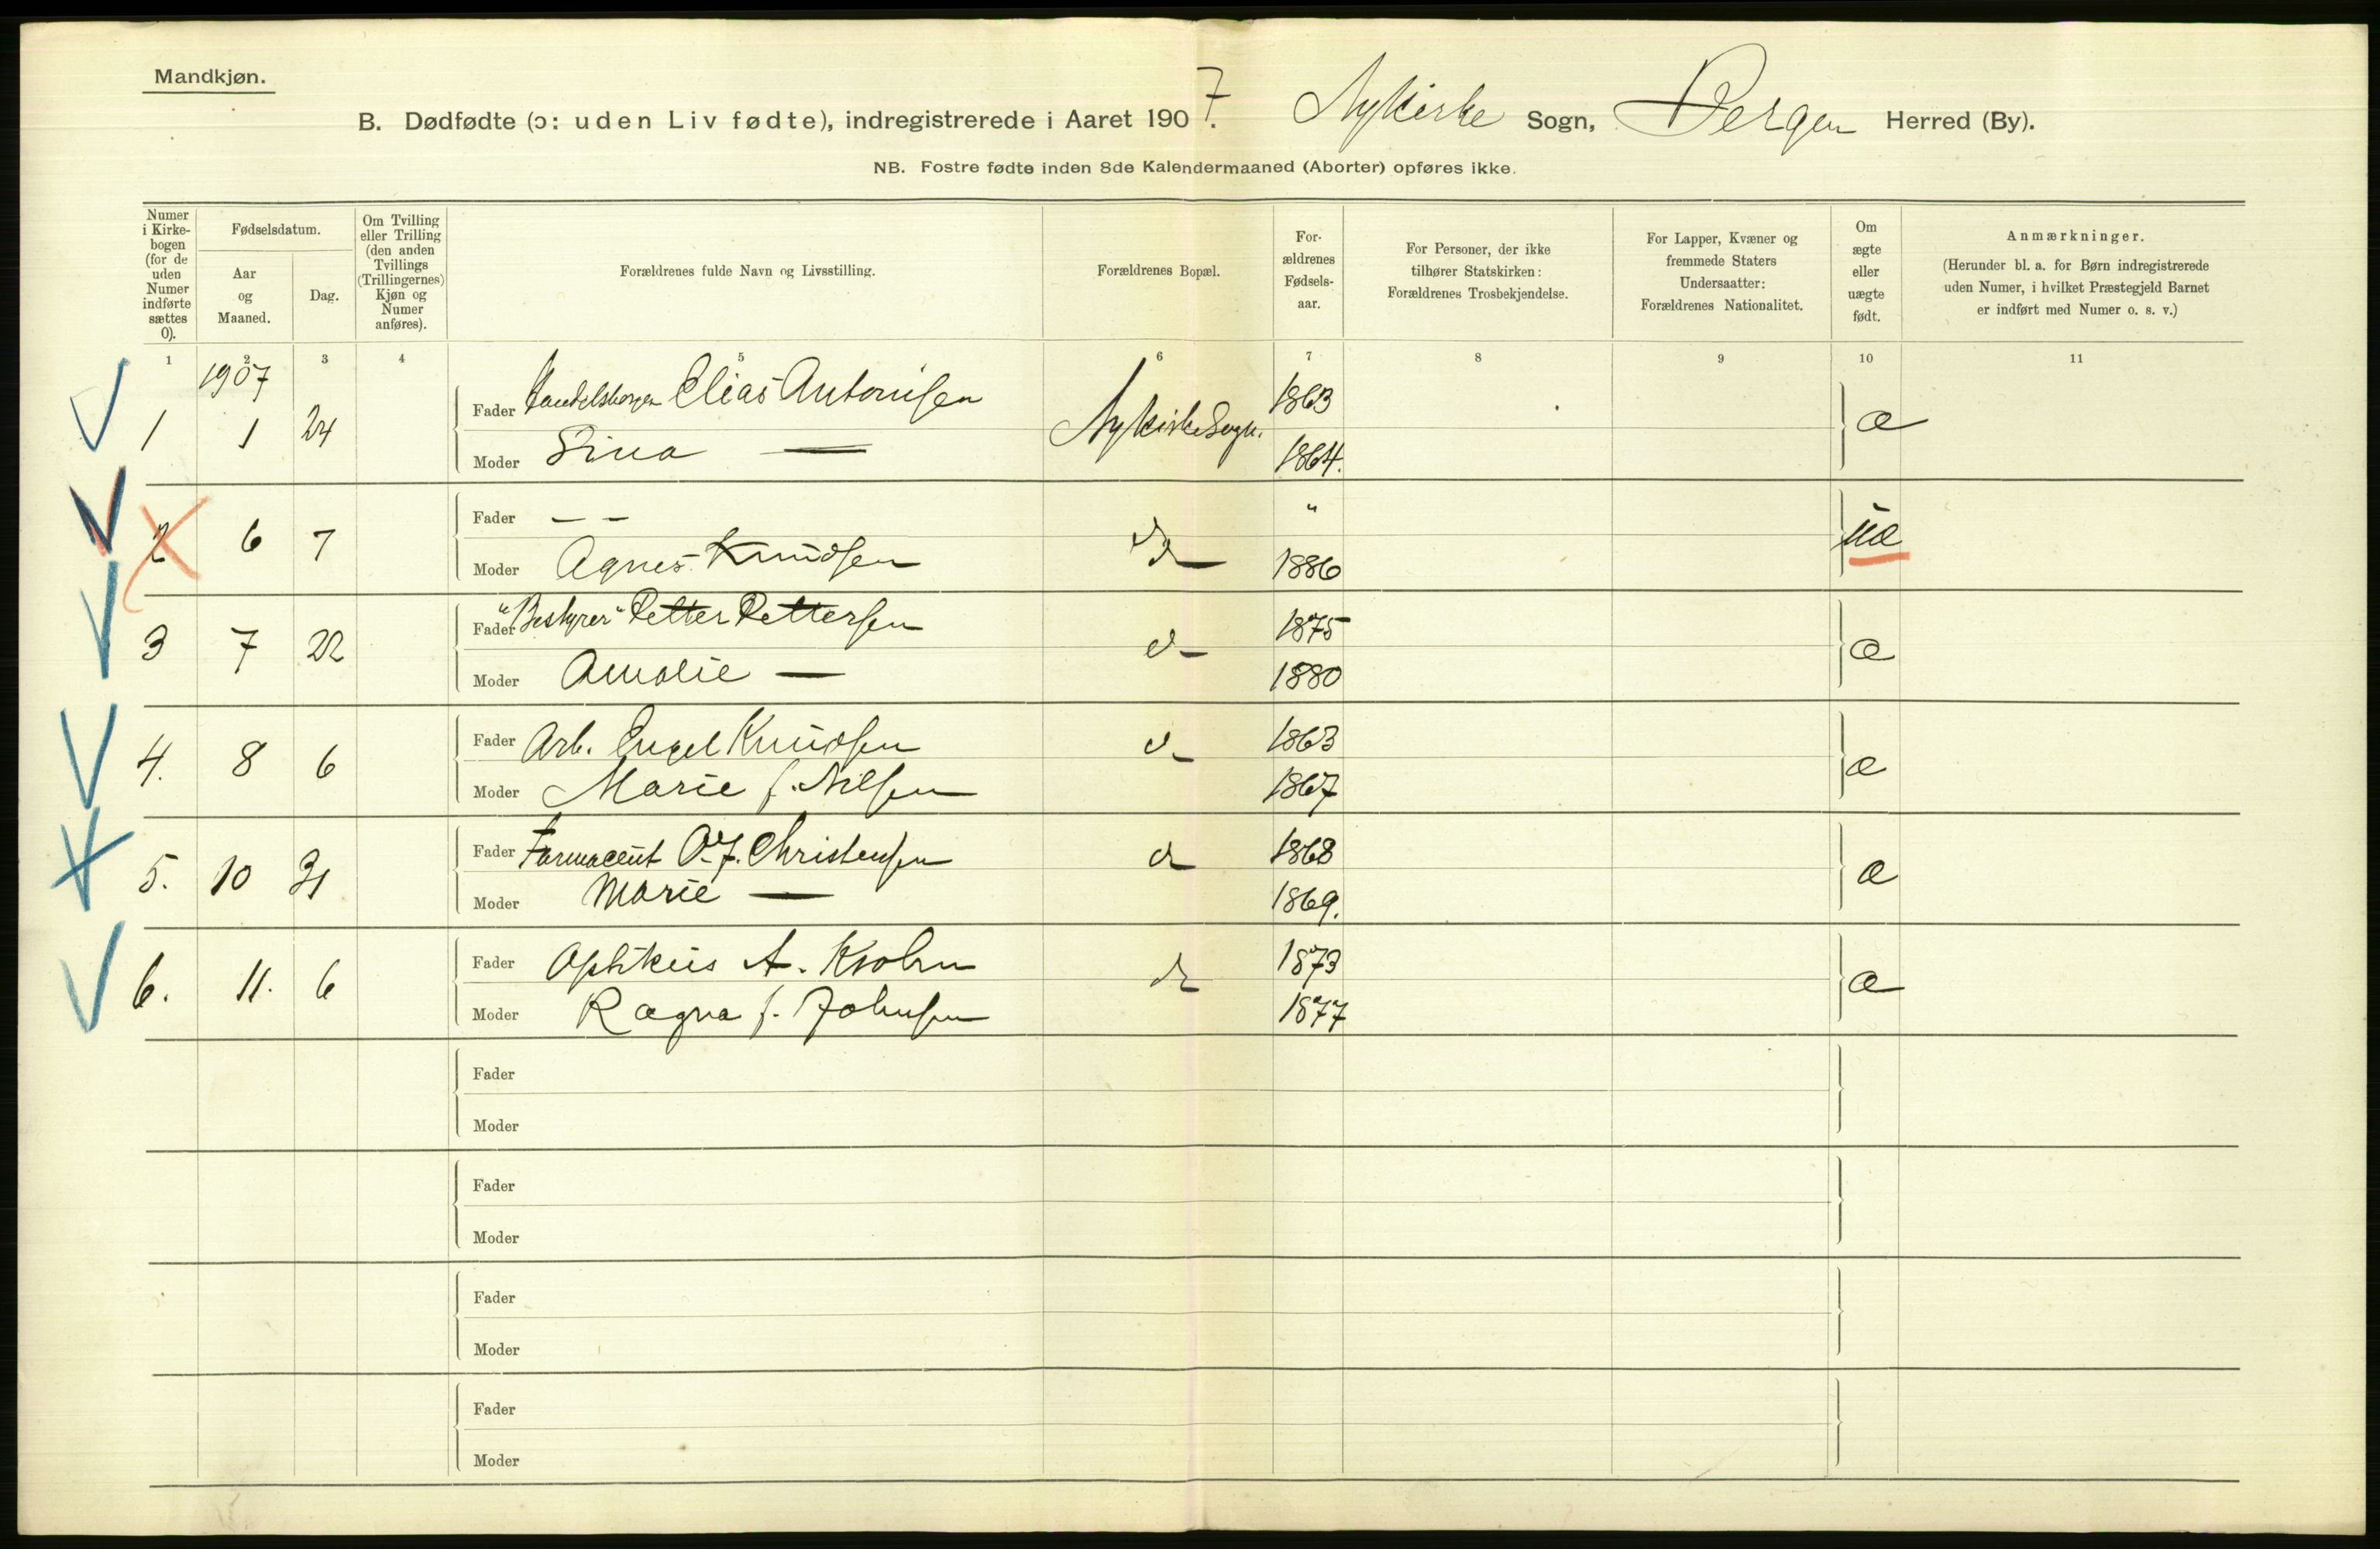 Mandkjøn.
B. Dødfødte (ɔ: uden Liv fødte), indregistrerede i Aaret 1907. Nykirke Sogn, Bergen Herred (By).
NB. Fostre fødte inden 8de Kalendermaaned (Aborter) opføres ikke.
Numer i Kirke-bogen (for de uden Numer indførte sættes 0).
Fødselsdatum.
Aar og Maaned.
Dag.
Om Tvilling eller Trilling (den anden Tvillings (Trillingernes) Kjøn og Numer anføres).
Forældrenes fulde Navn og Livsstilling.
Forældrenes Bopæl.
For-ældrenes Fødsels-aar.
For Personer, der ikke tilhører Statskirken: Forældrenes Trosbekjendelse.
For Lapper, Kvæner og fremmede Staters Undersaatter: Forældrenes Nationalitet.
Om ægte eller uægte født.
Anmærkninger.
(Herunder bl. a. for Børn indregistrerede uden Numer, i hvilket Præstegjeld Barnet er indført med Numer o. s. v.)
1 2 3 4 5 6 7 8 9 10 11
1907
1 1 24 Fader Handelsborger Elias Antonisen Nykirke Sogn. 1863 æ
Moder Sina — 1864.
2 6 7 Fader — — " uæ
Moder Agnes Knudsen d 1886
3 7 22 Fader "Bestyrer" Petter Pettersen d 1875 æ
Moder Amalie — 1880
4. 8 6 Fader Arb. Engel Knudsen d 1863 æ
Moder Marie f. Nilsen 1867
5. 10 31 Fader Farmaceut O. J. Christensen d 1868 æ
Moder Marie — 1869.
6. 11. 6 Fader Optikus A. Krohn d 1873 æ
Moder Ragna f. Johnsen 1877
Fader
Moder
Fader
Moder
Fader
Moder
Fader
Moder